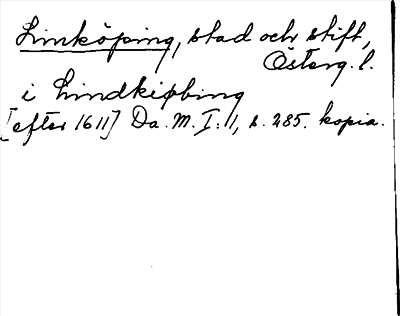 Linköping, stad och stift,
Österg. l.
i Lindkiøbing
[efter 1611] Da. M. I:1, s. 285. kopia.